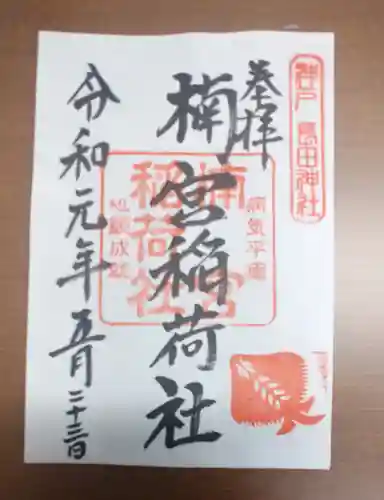 神戸 長田神社
奉拝
楠宮稲荷社
病気平癒
楠宮
稲荷社
心願成就
令和元年五月二十三日